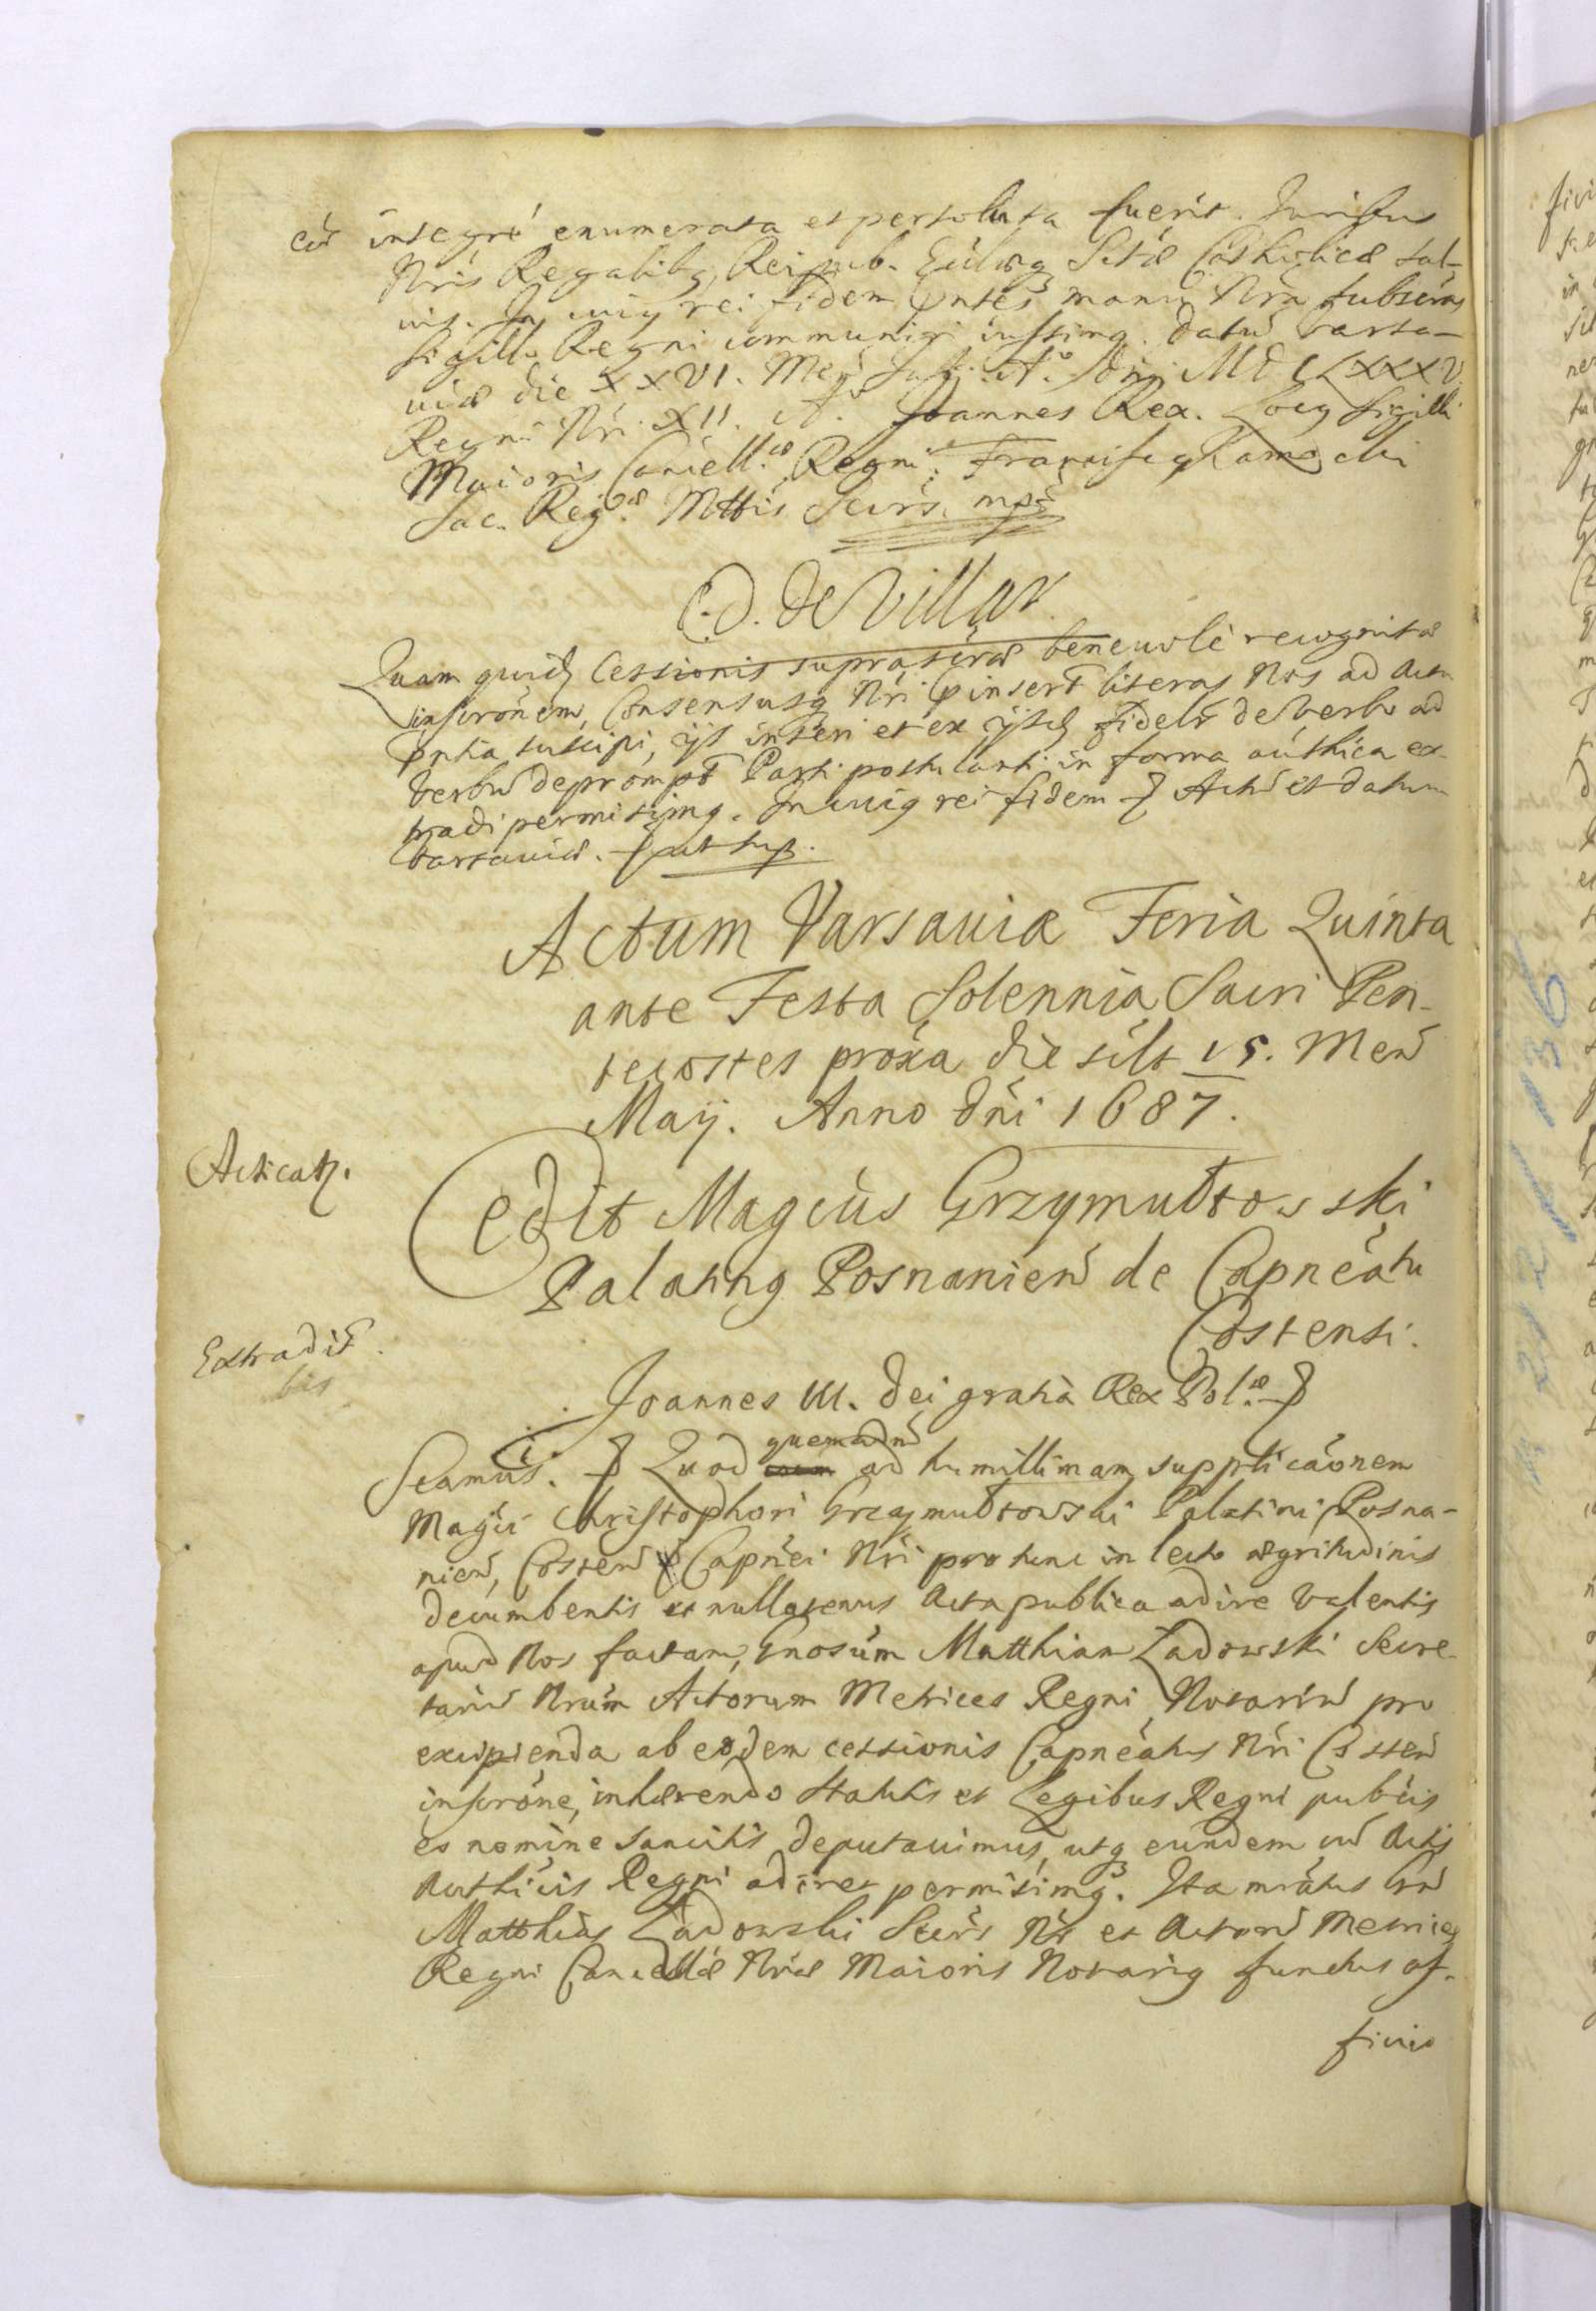 eid integrè enumerata et persoluta fuerit. Juribus
Nris Regalibq, Reipub. Ecclaeq Sctae Catholicae sal-
vis. In cuiq rei fidem pntes manu Nra subscras
sigillo Regni communiri iussimq. Datum Varsa-
viae die XXVI. Men July. Ao. Dni MDCLXXXV.
Regni Nri XII. Ao. Joannes Rex. Locq Sigilli
Maioris Cancell.ae Regni. Franciscq
Sac. Reg.ae Mttis Secrs. mpr
C. D. de Villar.
Quam quid Cessionis suprascrae benevolè recognitae
inscronem, Consensusq Nri pinsert literas Nos ad Acta
pntia suscipi, ijs inseri et ex ijsd fidelr de verbo ad
verbum deprompt Parti postulanti in forma authica ex-
tradi permisimq. In cuiq rei fidem Actum et datum
Varsaviae. ut sup.
Actum Varsaviae Feria Quinta
ante Festa Solennia Sacri Pen-
tecostes proxa die silt 15. Men
Maij. Anno Dni 1687.
Acticatr.
Cedit Magcus Grzymułtowski
Palatinq Posnanien de Capneatu
Costensi.
Extradit.
bis
Joannes III. Dei gratia Rex Pol.ae
Scamus. Quod quemadm ad humillimam supplicaonem
Magci Christophori Grzymułtowski Palatini Posna-
nien, Costen Capnei Nri pro tunc in lecto aegritudinis
decumbentis et nullatenus Acta publica adire valentis
apud Nos factam, Gnosum Matthiam Ładowski Secre-
tarium Nrum Actorum Metrices Regni Notarium pro
excipienda ab eodem cessionis Capneatus Nri Costen
inscrone, inhaerendo statutis et Legibus Regni publcis
eo nomine sancitis deputavimus, utq eundem cum Actis
Authcis Regni adiret permisimq. Ita mratus Gn
Matthias Ładowski Secrs Nr et Actorum Metrices
Regni Cancellae Nrae Maioris Notariq functus of-
ficio